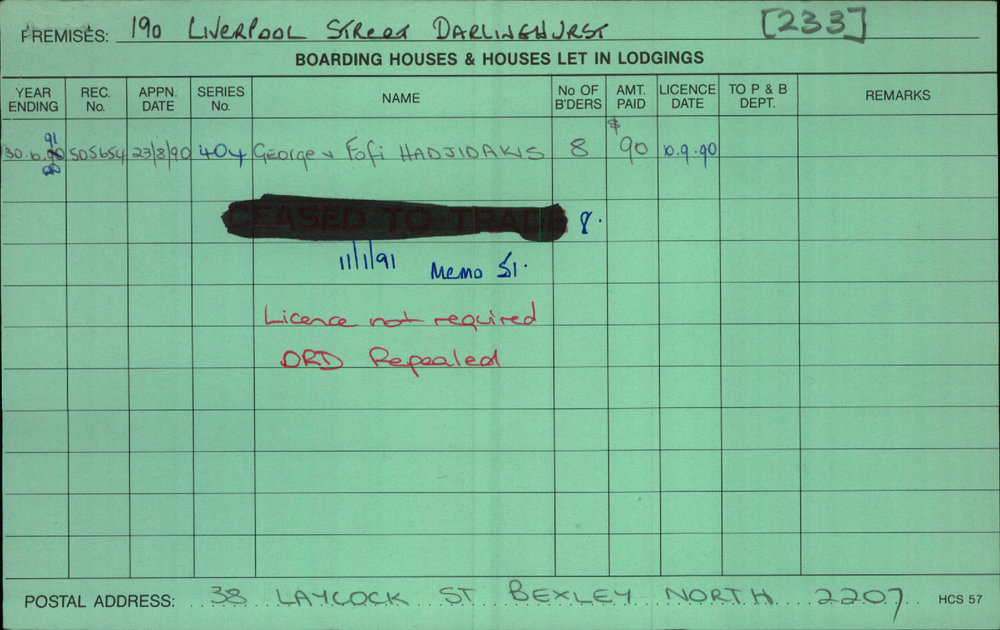 PREMISES: 190 LIVERPOOL STREET DARLINGHURST [233]
BOARDING HOUSES & HOUSES LET IN LODGINGS
YEAR ENDING REC. No. APPN. DATE SERIES No. NAME No OF B'DERS AMT. PAID LICENCE DATE TO P & B DEPT. REMARKS
30.6. 91 505654 23/8/90 404 George & Fofi HADJIDAKIS 8 $90 10.9.90
CEASED TO TRADE 8.
11/1/91 Memo 51.
Licence not required
ORD Repealed
POSTAL ADDRESS: 38 LAYCOCK ST BEXLEY NORTH 2207 HCS 57